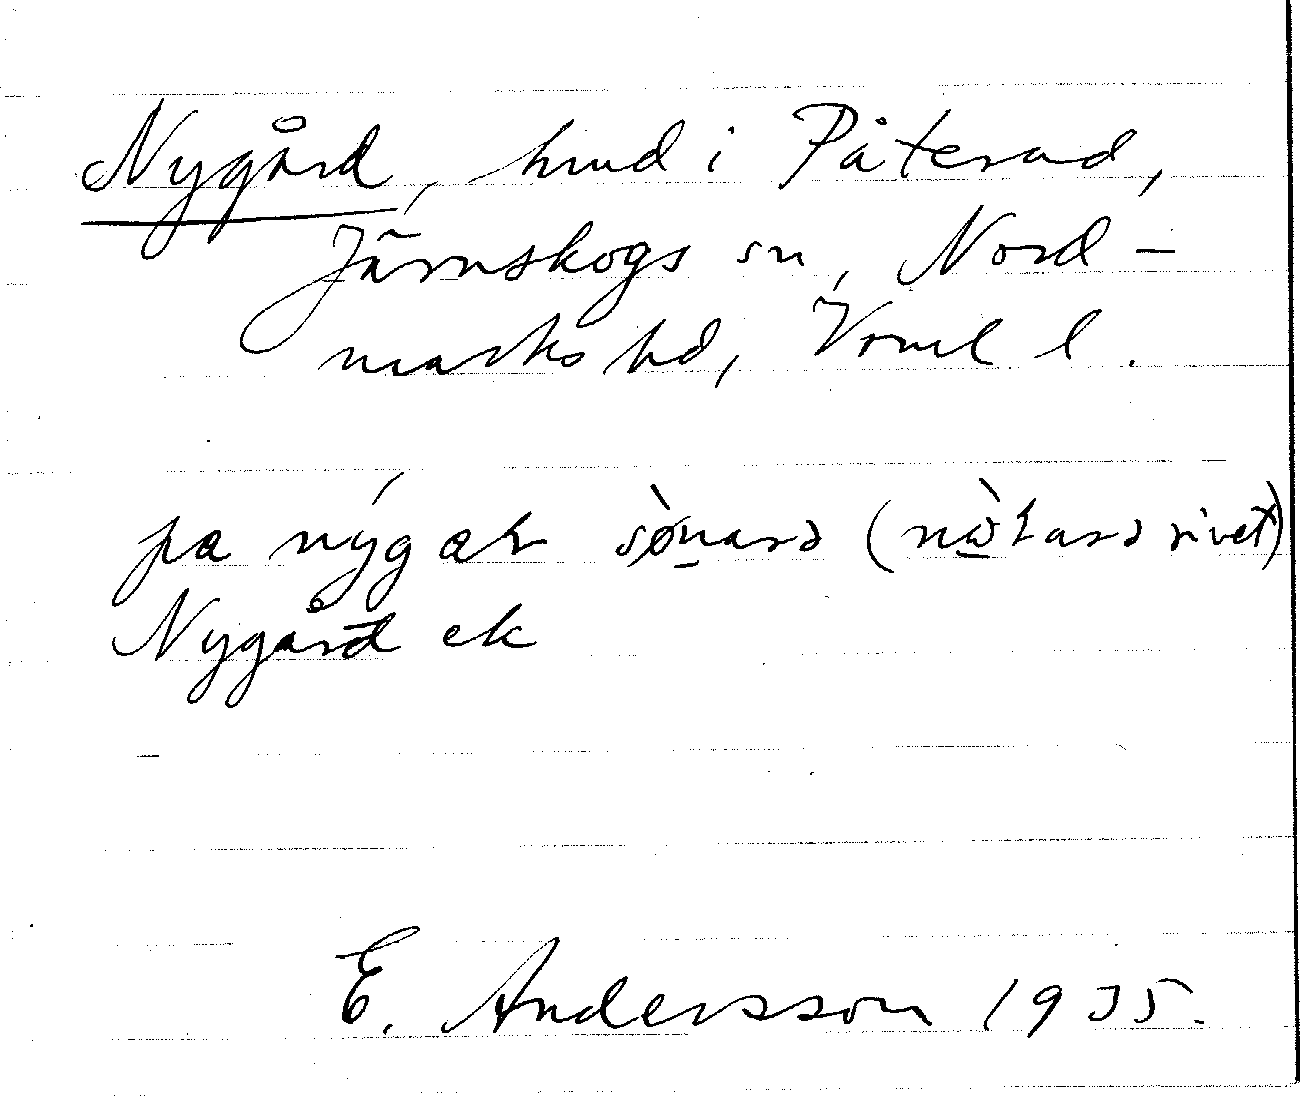 Nygård, hmd i Påterud,
Järnskogs sn, Nord-
marks hd, Vrml l.
pa nýgaɽ sø̀nanɔ (nὼɽanɔ rivet)
Nygård ek
E. Andersson 1935.